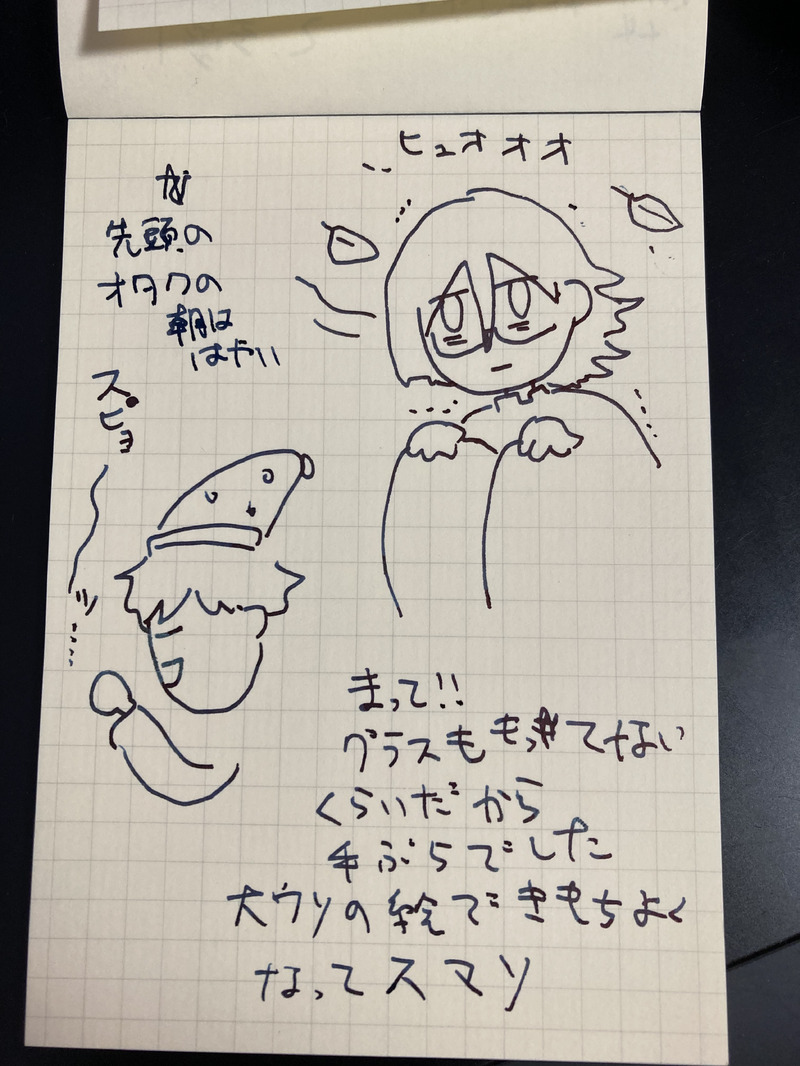 ヒュオオオ
先頭の
オタクの
朝は
はやい
スピョ
ッ
まって!!
グラスももってない
くらいだから
手ぶらでした
大ウソの絵できもちよく
なってスマソ